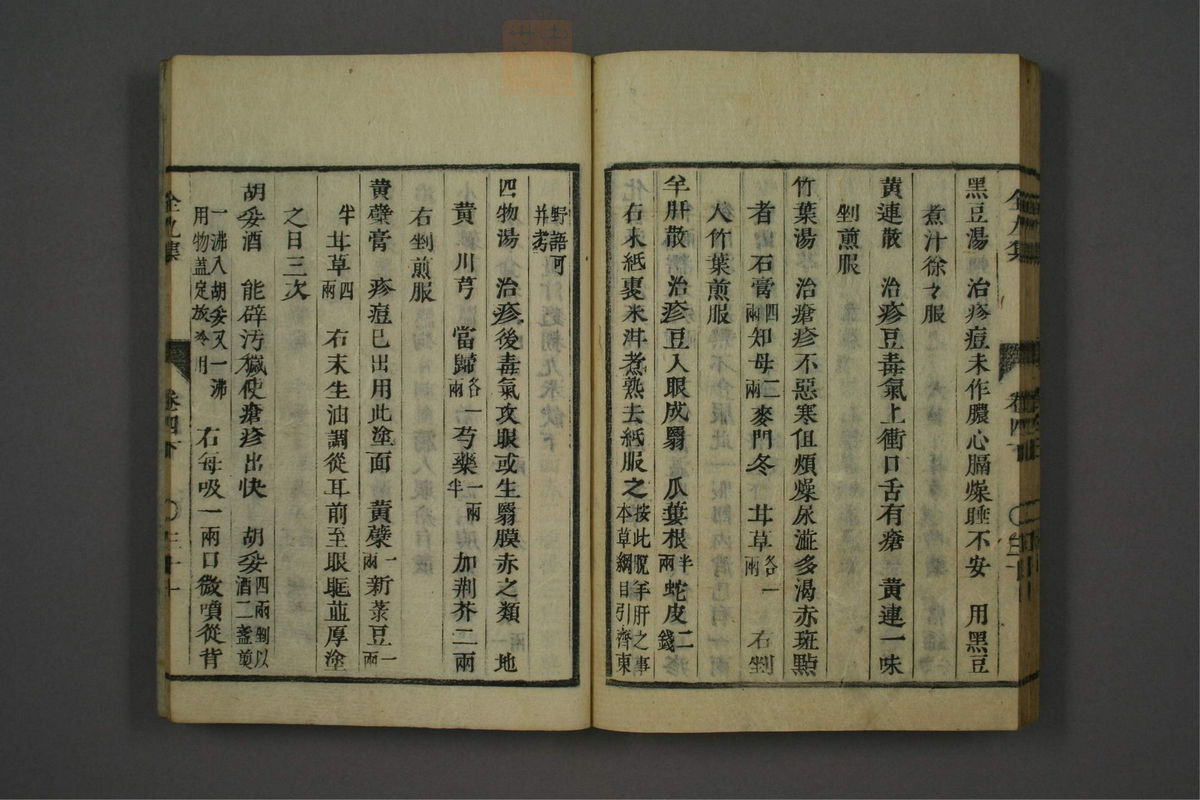 黑豆湯 治疹痘未作膿心膈燥睡不安 用黑豆
煮汁徐々服
黃連散 治疹豆毒氣上衝口舌有瘡 黃連一味
剉煎服
竹葉湯 治瘡疹不惡寒但煩燥尿澁多渴赤斑點
者 石膏四兩 知母二兩 麥門冬 甘草各一兩 右剉
入竹葉煎服
羊肝散 治疹豆入眼成翳 瓜蔞根半兩 蛇皮二錢
右末紙裹米泔煮熟去紙服之 按此呪羊肝之事本草綱目引齊東
野語可并考
四物湯 治疹後毒氣攻眼或生翳膜赤之類 地
黃 川芎 當歸各一兩 芍藥一兩半 加荆芥二兩
右剉煎服
黃蘗膏 疹痘已出用此塗面 黃蘗一兩 新菉豆一兩
半 甘草四兩 右末生油調從耳前至眼眶並厚塗
之日三次
胡荽酒 能辟汚穢使瘡疹出快 胡荽四兩剉以酒二盞煎
一沸入胡荽又一沸用物蓋定放冷用 右每吸一兩口微噴從背
全九集 卷四下